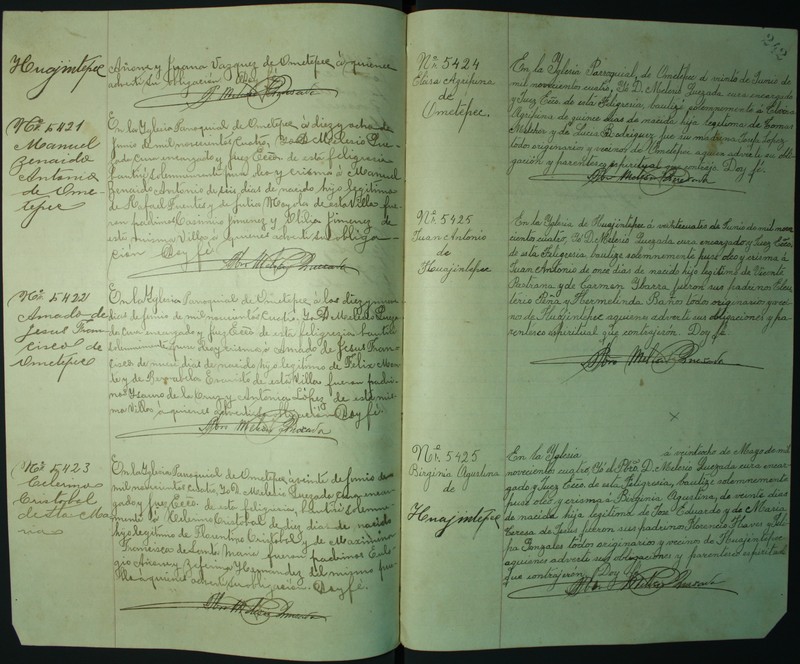 Huajintepec
Añorve y Juana Vazquez de Ometepec à quiénes
adverti su obligación Doy fé.
Nº 5421
Manuel
Genardo
Antonio
de Ome-
tepec
En la Yglesia Parroquial de Ometepec á diez y ocho de
Junio de mil novecientos cuatro, Yo D. Melesio Que-
zada Cura encargado y Juez Ecco. de esta feligresia
bautizé solemnemente puse oleo y crisma á Manuel
Genardo Antonio de seis dias de nacido hijo legitimo
de Rafael Fuentes y de Julia de esta Villa fue-
ron padrinos Casimiro Jimenez y Otilia Jimenez de
esta misma Villa à quienes adverti su obliga-
ción Doy fé.
Pbro Melesio Quezada
Nº 5422
Amado de
Jesus Fran-
cisco de
Ometepec
En la Yglesia Parroquial de Ometepec á los diez y nueve
dias de Junio de mil novecientos Cuatro, Yo D. Melesio Queza-
da Cura encargado y Juez Ecco de esta feligresia bautizé
solemnemente puse oleo y crisma á Amado de Jesus Fran-
cisco de nueve dias de nacido hijo legitimo de Felix
y de de esta Villa fueron padri-
nos de la Cruz y Antonia López de esta misma
Villa à quienes adverti su obligación Doy fé.
Pbro Melesio Quezada
Nº 5423
Celerino
Cristobal
de Sta Ma-
ria
En la Yglesia Parroquial de Ometepec á veinte de Junio de
mil novecientos Cuatro, Yo D. Melesio Quezada cura encar-
gado y Juez Ecco. de esta feligresia, bautizé solemne-
mente à Celerino Cristobal de diez dias de nacido
hijo legitimo de Florentino Cristobal y de Maximina
Francisco de Santa Maria fueron padrinos
Añorve y Zeferina Hernandez del mismo pue-
blo à quienes adverti su obligación. Doy fé.
Pbro Melesio Quezada
242
Nº 5424
Elisa Agripina
de
Ometepec.
En la Yglesia Parroquial, de Ometepec á veinte de Junio de
mil novecientos cuatro, Yó D. Melesio Quezada cura encargado
y Juez Ecco. de esta Feligresia, bautizé solemnemente á
Agripina de quince dias de nacida hija legitima de Tomas
Melchor y de Lucia Rodriguez fue su madrina
todos originarios y vecinos de Ometepec aquien adverti su obli-
gación y parentesco espiritual que contrajo. Doy fé.
Pbro Melesio Quezada
Nº 5425
Juan Antonio
de
Huajintepec
En la Yglesia de Huajintepec á veinticuatro de Junio de mil nove-
cientos cuatro, Yó D. Melesio Quezada cura encargado y Juez Ecco.
de esta Feligresia bautizé solemnemente puse oleo y crisma á
Juan Antonio de once dias de nacido hijo legitimo de Vicente
y de Carmen Ybarra fueron sus padrinos
y Hermelinda Baños todos originarios y veci-
nos de Huajintepec aquienes adverti sus obligaciones y pa-
rentesco espiritual que contrajeron. Doy fé.
Pbro Melesio Quezada
Nº 5425
Birginia Agustina
de
Huajintepec
En la Yglesia á veintiocho de Mayo de mil
novecientos cuatro, Yó el Pbro. D. Melesio Quezada cura encar-
gado y Juez Ecco. de esta Feligresia, bautizé solemnemente
puse oleo y crisma á Birginia Agustina, de veinte dias
de nacida hija legitima de José Eduardo y de Maria
Teresa de Jesus fueron sus padrinos Florencio Ybarra y Feli-
pa Gonzales todos originarios y vecinos de Huajintepec
aquienes adverti sus obligaciones y parentesco espiritual
que contrajeron. Doy fé.
Pbro Melesio Quezada